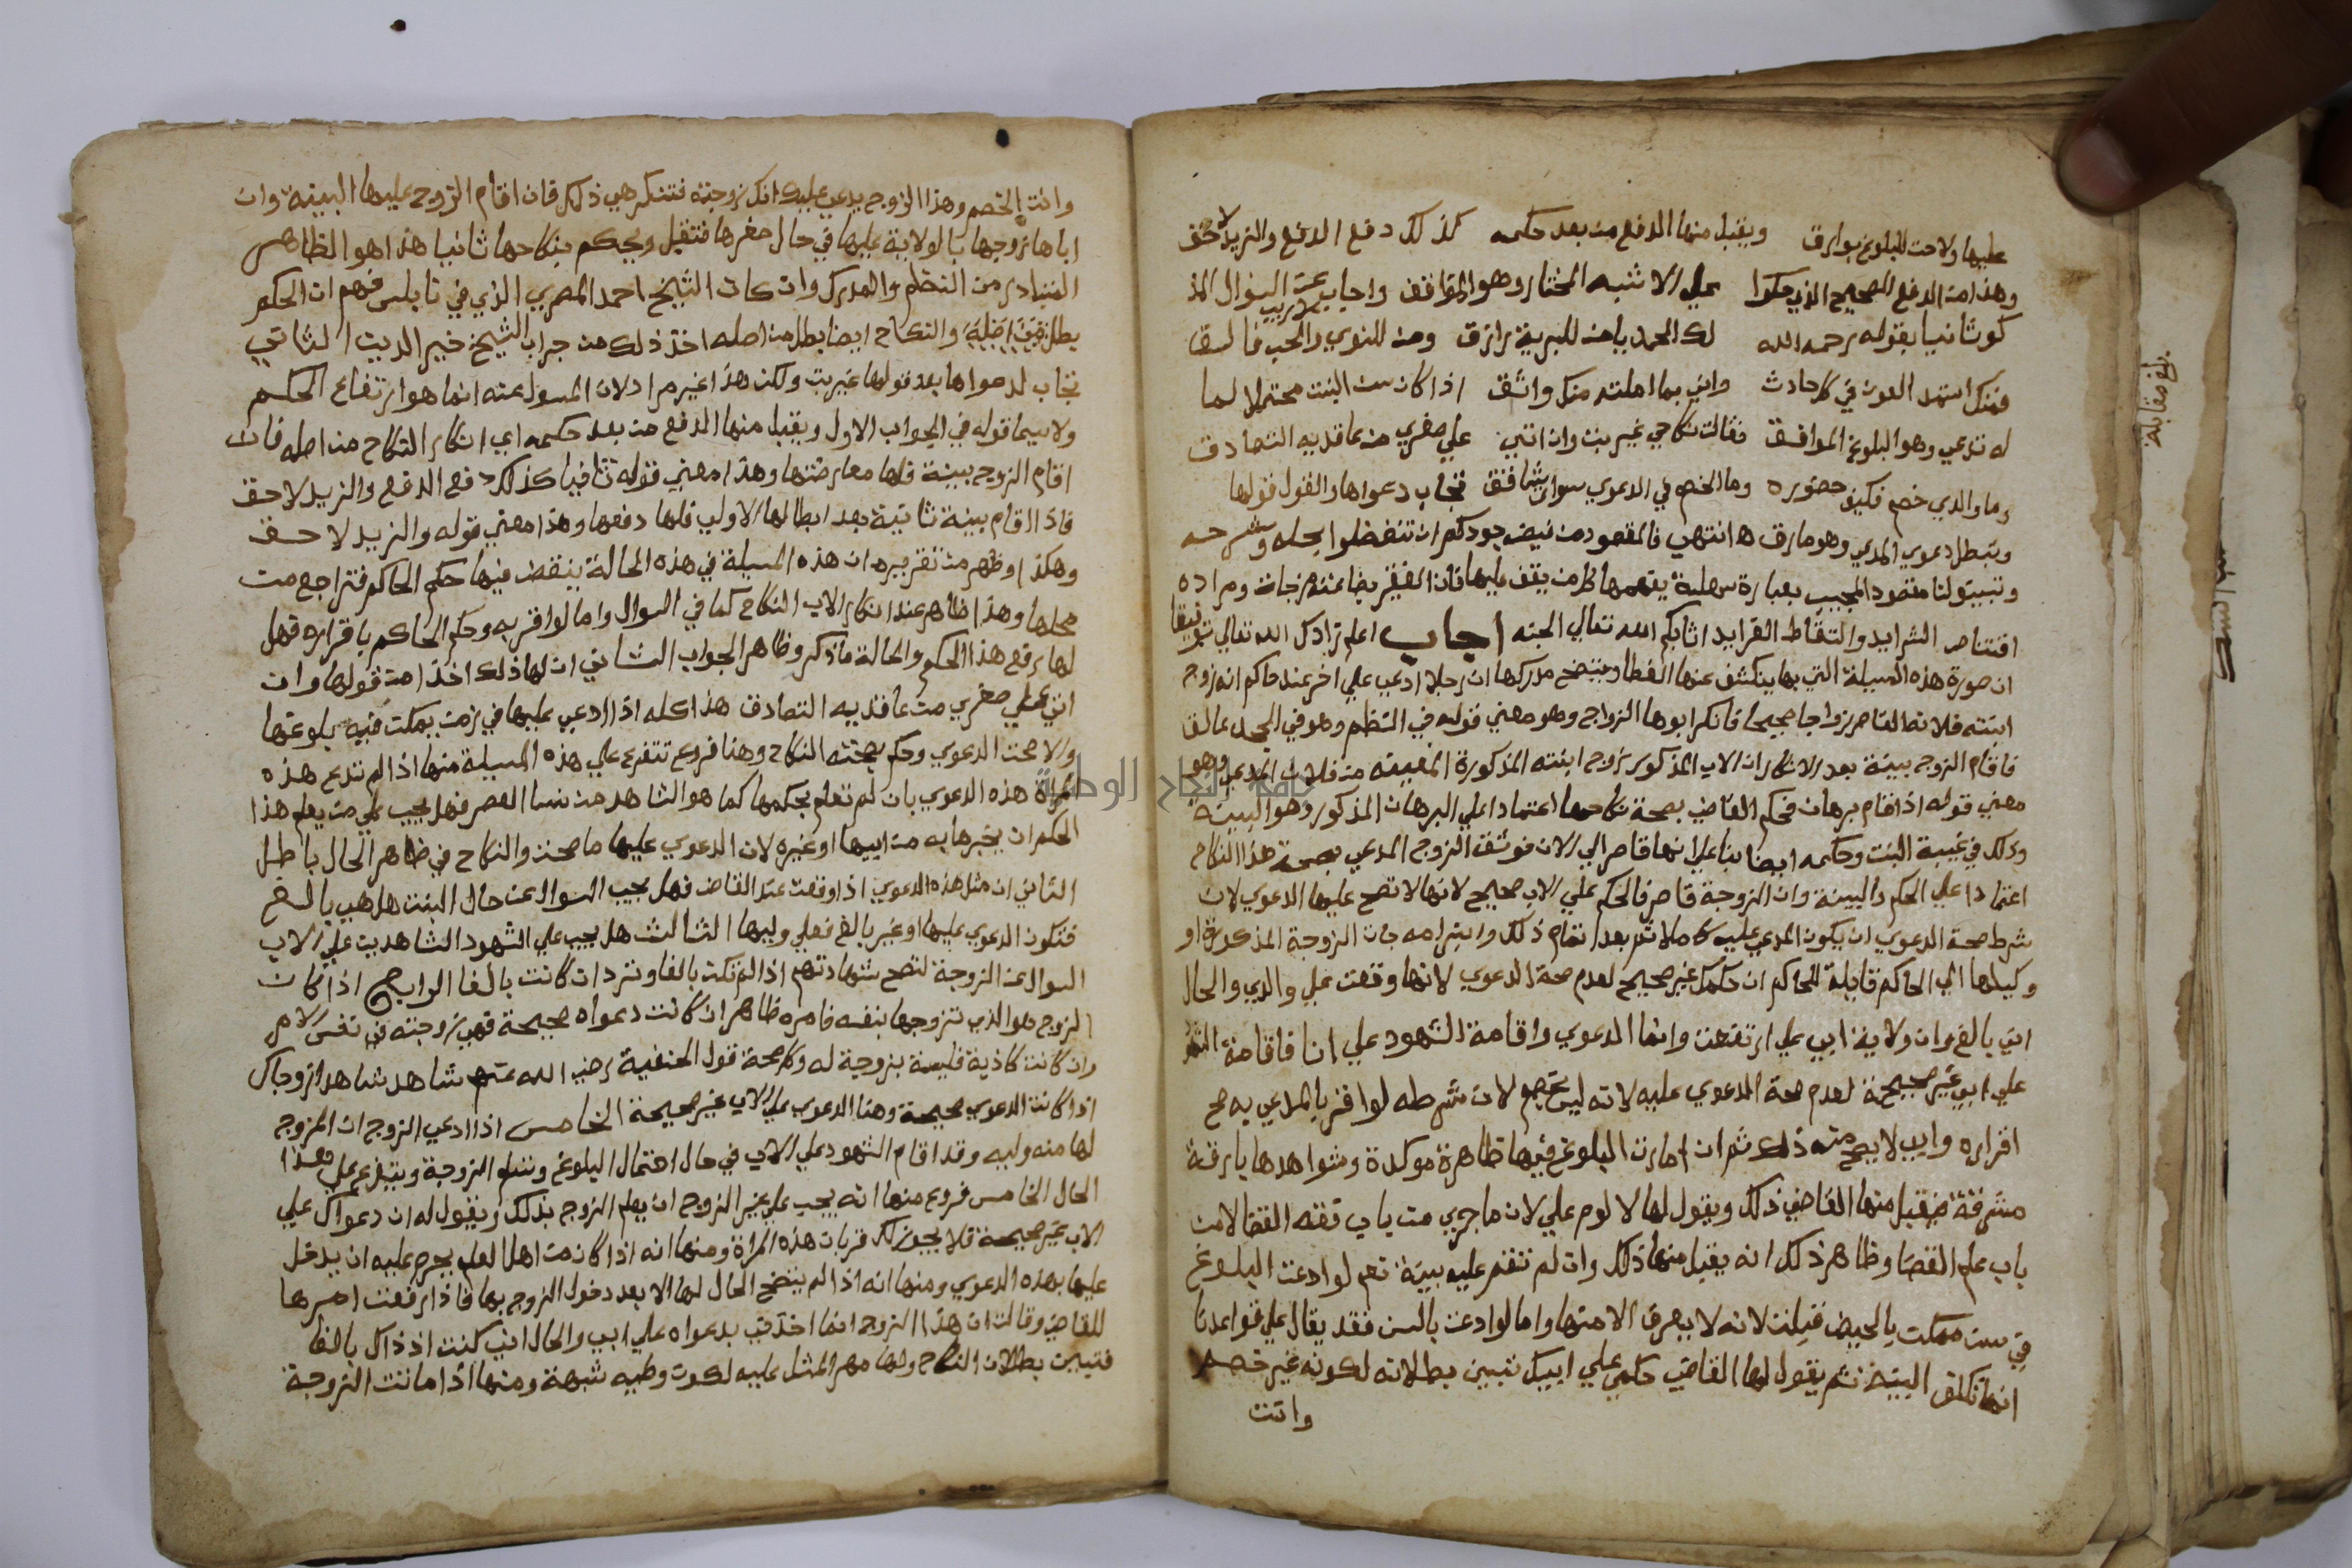 عليها ولاحت للبلوغ بوارق ويقبل منها الدفع من بعد حكمه كذلك دفع الدفع والزيد لاحق
وهذا من الدفع الصحيح الذي حكوا على الاشبه المختار وهو الموافق واجاب عن السؤال المذ
كور ثانيا بقوله رحمه الله لك الحمد يا من للبرية رازق ومن للنوي والحب فالق
فمنك استمد العون في كل حادث واني بما املته منك واثق اذا كان سن البنت محتملا لما
له تدعي وهو البلوغ الموافق فقالت نكاحي غير بت وان انني علي صغري من عاقديه التصادق
وما والدي خصم فكيف حضوره وما الخصم في الدعوي سوائي شافق تجاب دعواها والقول قولها
وتبطل دعوي المدعي وهو مارق ها انتهي فالمقصود من فيض جودكم ان تتفضلوا بحله وشرحه
وتبينوا لنا مقصود المجيب بعبارة سهلة يفهمها كل من يقف عليها فان الفقير بضاعته مزجاة ومراده
اقتناص الشرايد والتقاط الفرايد اثابكم الله تعالي الجنه اجاب اعلم زادك الله تعالي توفيقا
ان صورة هذه المسيلة التي بها ينكشف عنها الغطا ويتضح مدركها ان رجلا ادعي علي اخر عند حاكم انه زوج
ابنته فلانه القاصر زواجا صحيحا فانكر ابوها الزواج وهو معني قوله في النظم وهو في الجحد عالق
فاقام الزوج بينة بعد الانكار ان الاب المذكور زوج ابنته المذكورة المغيبه من فلان المدعي وهو
معني قوله اذ اقام برهان فحكم القاضي بصحة نكاحها اعتمادا علي البرهان المذكور وهو البينة
وذلك في غيبة البنت وحكمه ايضا بنا علي انها قاصر الي الان فوثق الزوج المدعي بصحة هذا النكاح
اعتمادا علي الحكم والبينة وان الزوجة قاصر فالحكم علي الاب صحيح لانها لا تصح عليها الدعوي لان
شرط صحة الدعوي ان يكون المدعي عليه كاملا ثم بعد اتمام ذلك وابترامه جات الزوجة المذكورة او
وكيلها الي الحاكم قايلة للحاكم ان حكمك غير صحيح لعدم صحة الدعوي لانها وقعت علي والدي والحال
اني بالغ وان ولاية ابي علي ارتفعت وانما الدعوي واقامة الشهود علي انا فاقامة
علي ابي غير صحيحة لعدم صحة الدعوي عليه لانه ليس بخصم لان شرطه لو اقر بالمدعي به صح
اقراره وابي لا يصح منه ذلك ثم ان امارت البلوغ فيها ظاهرة موكدة وشواهدها بارقة
مشرقة فيقبل منها القاضي ذلك ويقول لها لا لوم علي لان ما جري من باب فقه القضا لا من
باب علم القضا وظاهر ذلك انه يقبل منها ذلك وان لم تقم عليه بينة نعم لو ادعت البلوغ
في سن ممكن بالحيض قبلت لانه لا يعرف الا منها واما لو ادعت بالسن فقد يقال علي قواعدنا
انها تكلف البينة ثم يقول لها القاضي حكمي علي ابيك تبين بطلانه لكونه غير خصم
وانت
بلغ مقابلة
وانت الخصم وهذا الزوج يدعي عليك انك زوجته فتنكر هي ذلك فان اقام الزوج عليها البينة وان
اباها زوجها بالولاية عليها في حال صغرها فتقبل ويحكم بنكاحها ثانيا هذا هو الظاهر
المتبادر من النظم والمدرك وان كان الشيخ احمد المصري الذي في نابلس فهم ان الحكم
يطل من اصله والنكاح ايضا يطل من اصله اخذ ذلك من جواب الشيخ خير الدين الثاني
تجاب لدعواها بعد قولها غير بت ولكن هذا غير مراد لان المسول عنه انما هو ارتفاع الحكم
ولا سيما قوله في الجواب الاول ويقبل منها الدفع من بعد حكمه اي انكار النكاح من اصله فان
اقام الزوج بينة فلها معارضتها وهذا معني قوله ثانيا كذلك دفع الدفع والزيد لاحق
فاذا اقام بينة ثانية بعد ابطالها الاولي فلها دفعها وهذا معني قوله والزيد لاحق
وهكذا وظهر من تقريره ان هذه المسيلة في هذه الحالة ينقض فيها حكم الحاكم فتراجع من
محلها وهذا ظاهر عند انكار الاب النكاح كما في السوال واما لو اقر به وحكم الحاكم باقراره فهل
لها رفع هذا الحكم والحالة ما ذكر وظاهر الجواب الثاني ان لها ذلك اخذا من قولها وان
انني علي صغري من عاقديه التصادق هذا كله اذا ادعي عليها في زمن يمكن فيه بلوغها
والا صحت الدعوي وحكم بصحته النكاح وهنا فروع تتفرع علي هذه المسيلة منها اذا لم تدع هذه
المراة هذه الدعوي بان لم تعلم بحكمها كما هو الشاهد من نسا العصر فهل يجب علي من يعلم هذا
الحكم ان يخبرها به من ابيها او غيره لان الدعوي عليها ما صحت والنكاح في ظاهر الحال باطل
الثاني ان مثل هذه الدعوي اذا وقعت عند القاضي فهل يجب السوال عن حال البنت هل هي بالغ
فتكون الدعوي عليها او غير بالغ فعلي وليها الثالث هل يجب علي الشهود الشاهدين علي الاب
السوال عن الزوجة لتصح شهادتهم اذا لم تكن بالغا وترد ان كانت بالغا الرابع اذا كان
الزوج هو الذي تزوجها بنفسه فامره ظاهر ان كانت دعواه صحيحة فهي زوجته في نفس الامر
وان كانت كاذبة فليست بزوجية له وكل صحة قول الحنفية رضي الله عنهم شاهد شاهد زوجاك
اذا كانت الدعوي صحيحة وهنا الدعوي علي الاب غير صحيحة الخامس اذا ادعي الزوج ان المزوج
لها منه وليه وقد اقام الشهود علي الاب في حال احتمال البلوغ وتسلم الزوجة ويتفرع علي هذا
الحال الخامس فروع منها انه يجب علي غير الزوج ان يعلم الزوج بذلك ويقول له ان دعواك علي
الاب غير صحيحة فلا يجوز لك قربان هذه المراة ومنها انه اذا كان من اهل العلم يحرم عليه ان يدخل
عليها بهذه الدعوي ومنها انه اذا لم يتضح الحال لها الا بعد دخول الزوج بها فاذا رفعت امرها
للقاضي وقالت ان هذا الزوج انما اخذني بدعواه علي ابي والحال اني كنت اذ ذاك بالغا
فتبين بطلان النكاح ولها مهر المثل عليه لكون وطيه شبهة ومنها اذا ماتت الزوجة
جامعة النجاح الوطنية